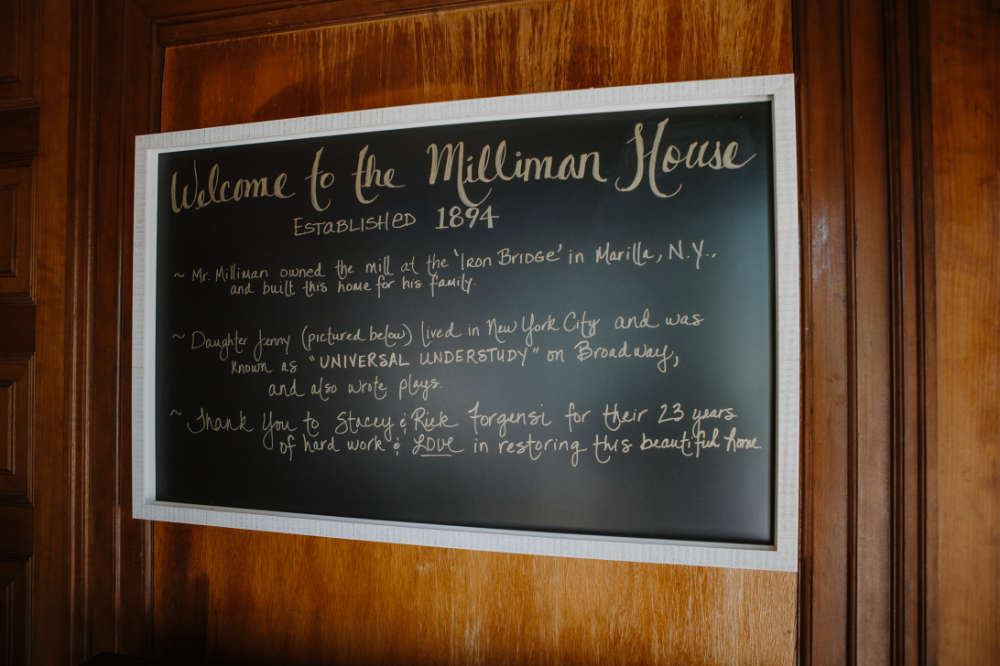 Welcome to the Milliman House
Established 1894
~ Mr. Milliman owned the mill at the 'Iron Bridge' in Marilla, N.Y.,
and built this home for his family.
~ Daughter Jenny (pictured below) lived in New York City and was
known as "UNIVERSAL UNDERSTUDY" on Broadway,
and also wrote plays.
~ Thank You to Stacey & Rick Forgensi for their 23 years
of hard work & LOVE in restoring this beautiful home